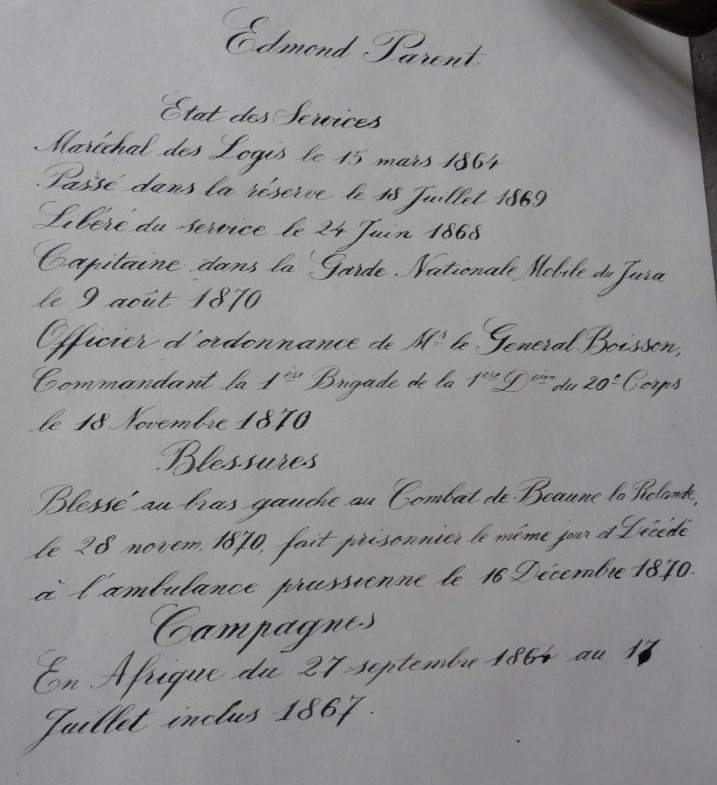 Edmond Parent
Etat des Services
Maréchal des Logis le 15 mars 1864
Passé dans la réserve le 18 Juillet 1869
Libéré du service le 24 Juin 1868
Capitaine dans la Garde Nationale Mobile du Jura
le 9 août 1870
Officier d'ordonnance de Mr le General Boisson,
Commandant la 1ère Brigade de la 1ère Doion du 20e Corps
le 18 Novembre 1870
Blessures
Blessé au bras gauche au Combat de Beaune la Rolande,
le 28 novem. 1870, fait prisonnier le même jour et Décédé
à l'ambulance prussienne le 16 Décembre 1870.
Campagnes
En Afrique du 27 septembre 1864 au 17
Juillet inclus 1867.